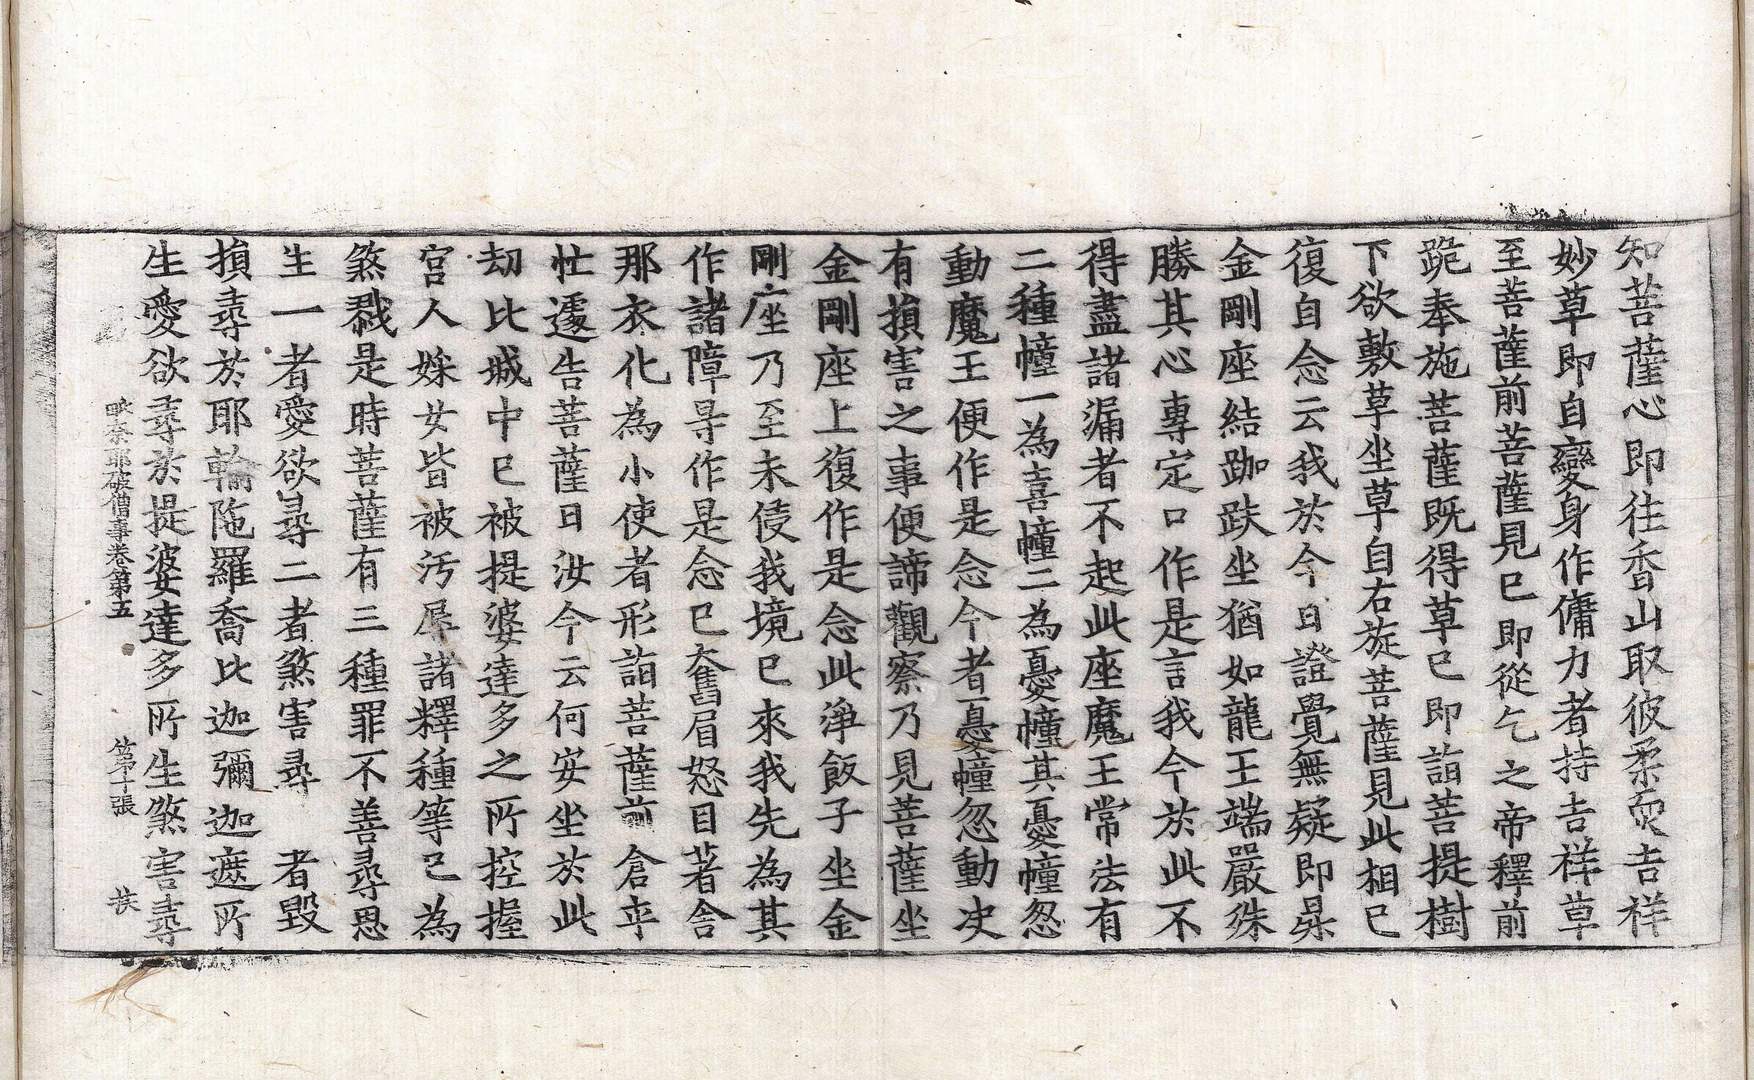 知菩薩心即往香山取彼柔耎吉祥
妙草即自變身作傭力者持吉祥草
至菩薩前菩薩見已即從乞之帝釋前
跪奉施菩薩既得草已即詣菩提樹
下欲敷草坐草自右旋菩薩見此相已
復自念云我於今日證覺無疑即昇
金剛座結跏趺坐猶如龍王端嚴殊
勝其心專定口作是言我今於此不
得盡諸漏者不起此座魔王常法有
二種幢一為喜幢二為憂幢其憂幢忽
動魔王便作是念今者憂幢忽動决
有損害之事便諦觀察乃見菩薩坐
金剛座上復作是念此淨飯子坐金
剛座乃至未侵我境已來我先為其
作諸障㝵作是念已奮眉怒目著舍
那衣化為小使者形詣菩薩前倉卒
忙遽告菩薩曰汝今云何安坐於此
劫比城中已被提婆達多之所控握
宮人婇女皆被污辱諸釋種等已為
煞戮是時菩薩有三種罪不善尋思
生一者愛欲尋二者煞害尋 者毀
損尋於耶輸陁羅喬比迦彌迦遮所
生愛欲尋於提婆達多所生煞害尋
毗奈耶破僧事卷第五 第十張 扶